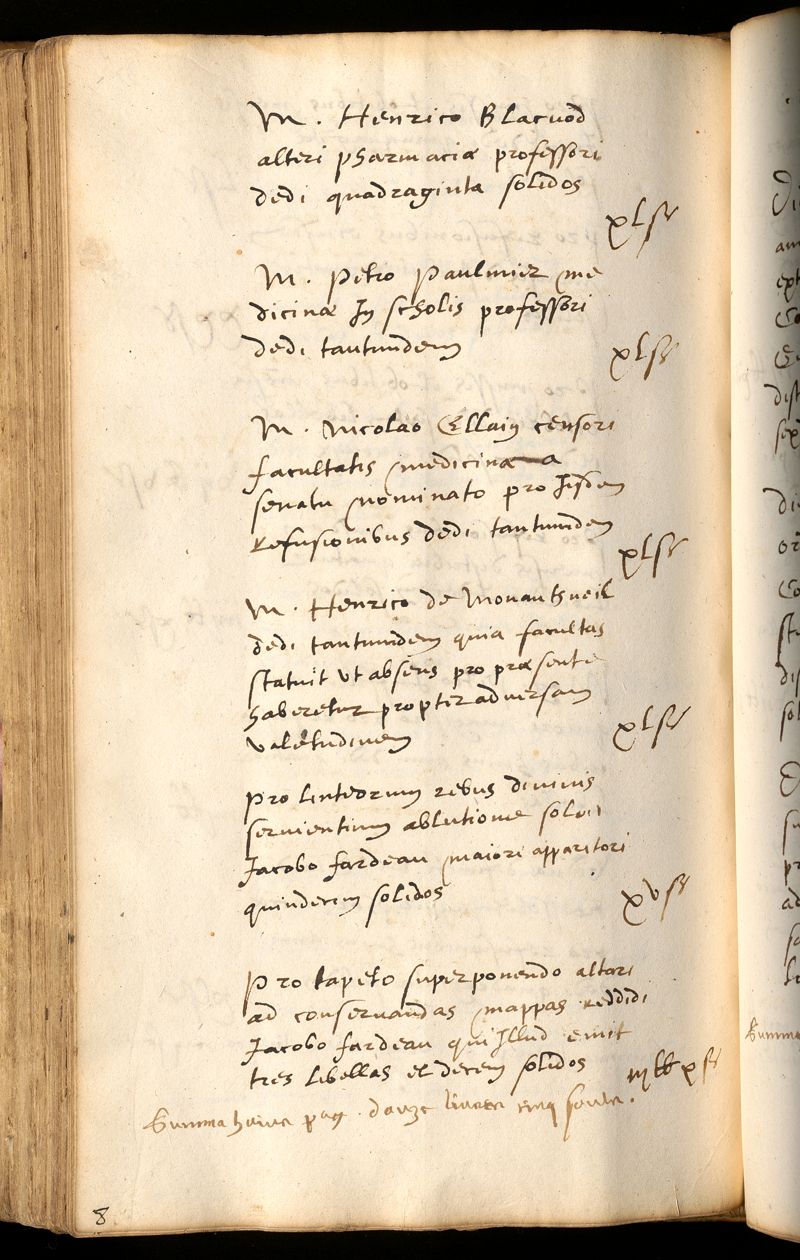 M. Henrico Blacuod
alteri pharmaciæ professori
dedi quadraginta solidos
xls
M. Petro Paulmier me
dicinæ In scholis professori
dedi tantundem
xls
M. Nicolao Ellain censori
facultatis medicinæ a
senatu nominato pro Iisdem
refusionibus dedi tantumdem
xls
M. Henrico de Monantheuil
dedi tantumdem quia facultas
statuit vt absens pro præsente
haberetur propter aduersam
valetudinem
xls
Pro linteorum rebus diuinis
seruientium ablutione solui
Jacobo fardeau maiori apparitori
quindecim solidos
xvs
Pro tapeto superponendo altari
ad conseruandas mappas reddidi
Jacobo fardeau qui Illud emit
tres libellas et decem solidos
iijll xs
Summa huius pag. douze liures cinq soulz.
8
Summa